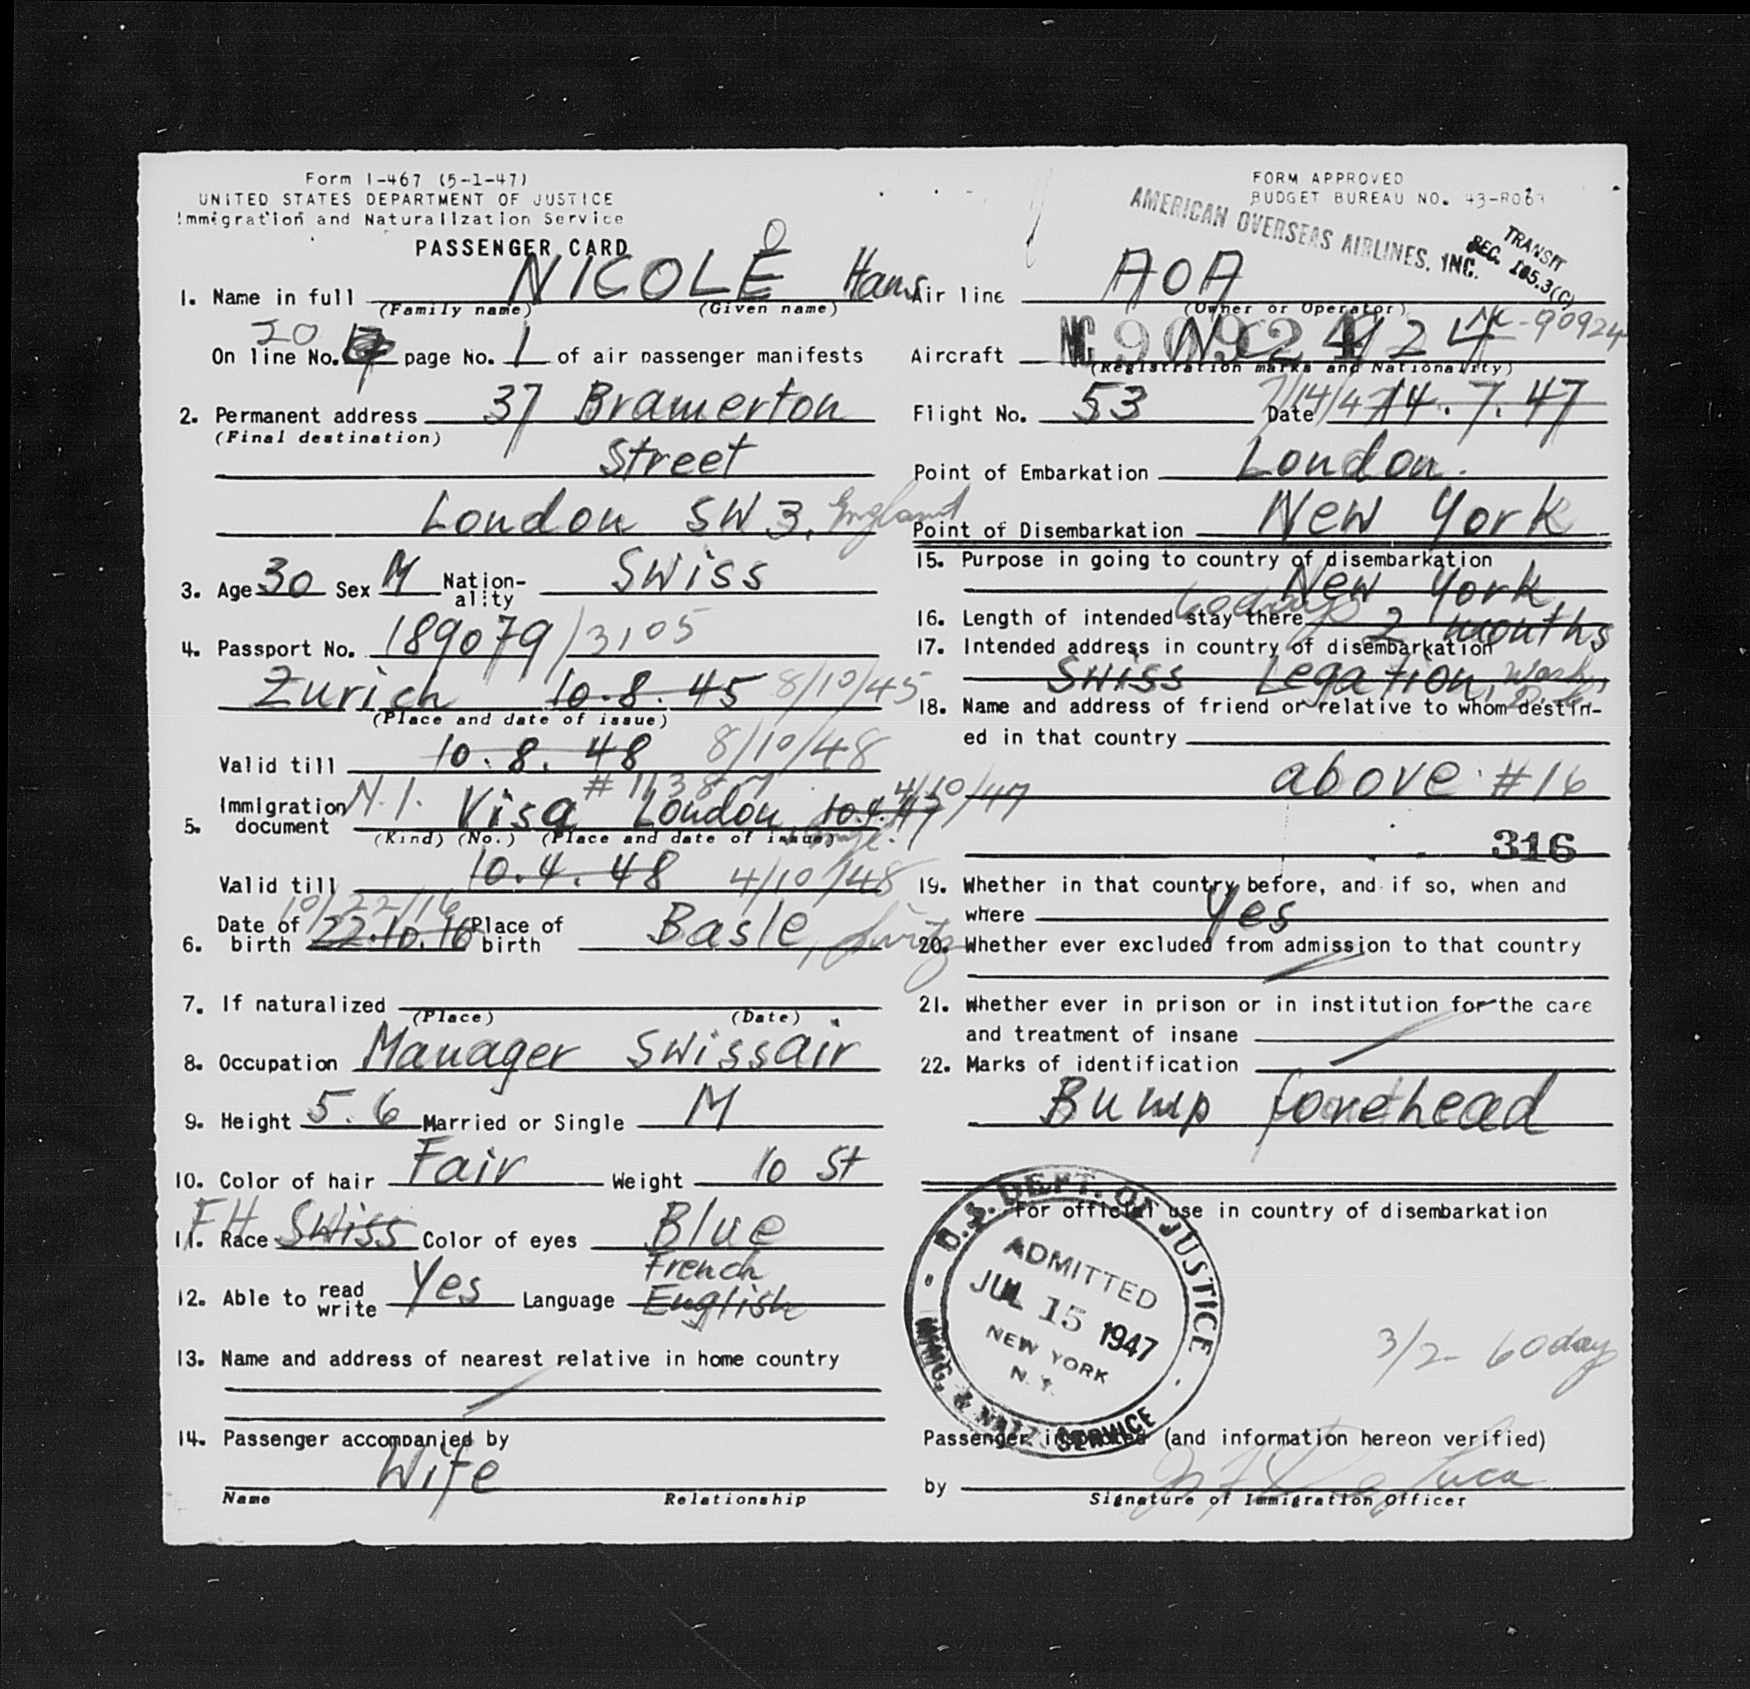 Form I-467 (5-1-47)
UNITED STATES DEPARTMENT OF JUSTICE
Immigration and Naturalization Service
PASSENGER CARD
FORM APPROVED
BUDGET BUREAU NO. 43-R063
AMERICAN OVERSEAS AIRLINES, INC.
TRANSIT
SEC. 105.3(C)
1. Name in full NICOLE Hans
(Family name) (Given name)
On line No. 20 page No. 1 of air passenger manifests
2. Permanent address 37 Bramerton
(Final destination)
Street
London SW 3, England
3. Age 30 Sex M Nation-ality Swiss
4. Passport No. 189079/3105
Zurich 10.8.45 8/10/45
(Place and date of issue)
Valid till 10.8.48 8/10/48
5. Immigration document N.I. Visa # 11387 London 10.4.47 4/10/47
(Kind) (No.) (Place and date of issue)
Valid till 10.4.48 4/10/48
10/22/16
6. Date of birth 22.10.16 Place of birth Basle, Switz
7. If naturalized
(Place) (Date)
8. Occupation Manager Swissair
9. Height 5.6 Married or Single M
10. Color of hair Fair Weight 10 St
11. Race FH Swiss Color of eyes Blue
French
12. Able to read write Yes Language English
13. Name and address of nearest relative in home country
14. Passenger accompanied by
Wife
Name Relationship
Air line AOA
(Owner or Operator)
Aircraft NC 90924 NC-90924
(Registration marks and Nationality)
Flight No. 53 Date 7/14/47 14.7.47
Point of Embarkation London.
Point of Disembarkation New York
15. Purpose in going to country of disembarkation
New York
16. Length of intended stay there 60 days 2 months
17. Intended address in country of disembarkation
Swiss Legation, Wash, D.C.
18. Name and address of friend or relative to whom destin-
ed in that country
above #16
316
19. Whether in that country before, and if so, when and
where Yes
20. Whether ever excluded from admission to that country
21. Whether ever in prison or in institution for the care
and treatment of insane
22. Marks of identification
Bump forehead
For official use in country of disembarkation
U.S. DEPT. OF JUSTICE
ADMITTED
JUL 15 1947
NEW YORK
N.Y.
IMMG. & NATZ. SERVICE
3/2- 60 day
Passenger inspected (and information hereon verified)
by
Signature of Immigration Officer